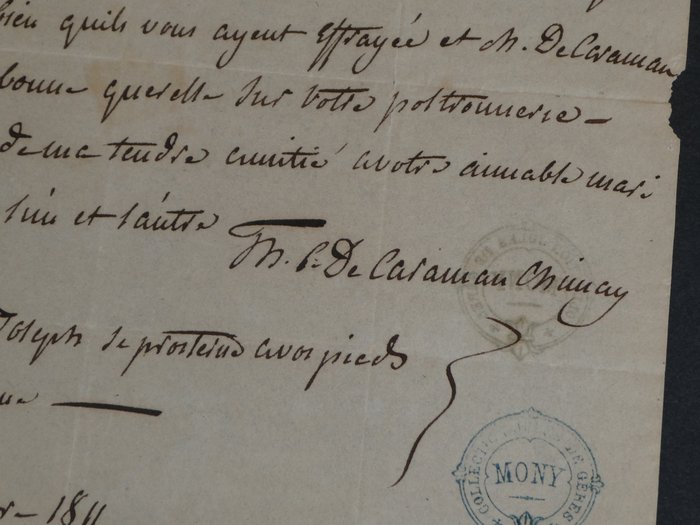 bien quils vous ayent effrayée et M. De Caraman
bonne querelle sur votre poltronnerie -
de ma tendre amitié a votre aimable mari
l'un et l'autre
Th. De Caraman Chimay
Joseph se prosterne a vos pieds
1811
COLLECTION DE GÈRES
MONY